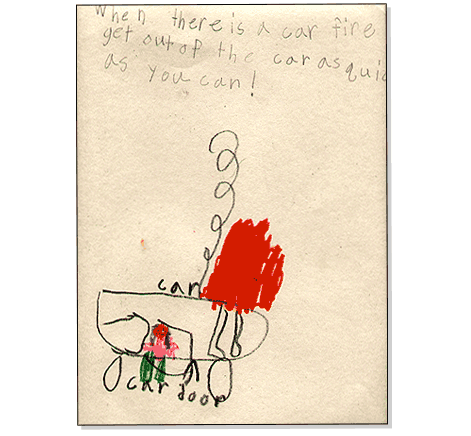 When there is a car fire
get out of the car as quic
as you can!
car
car door